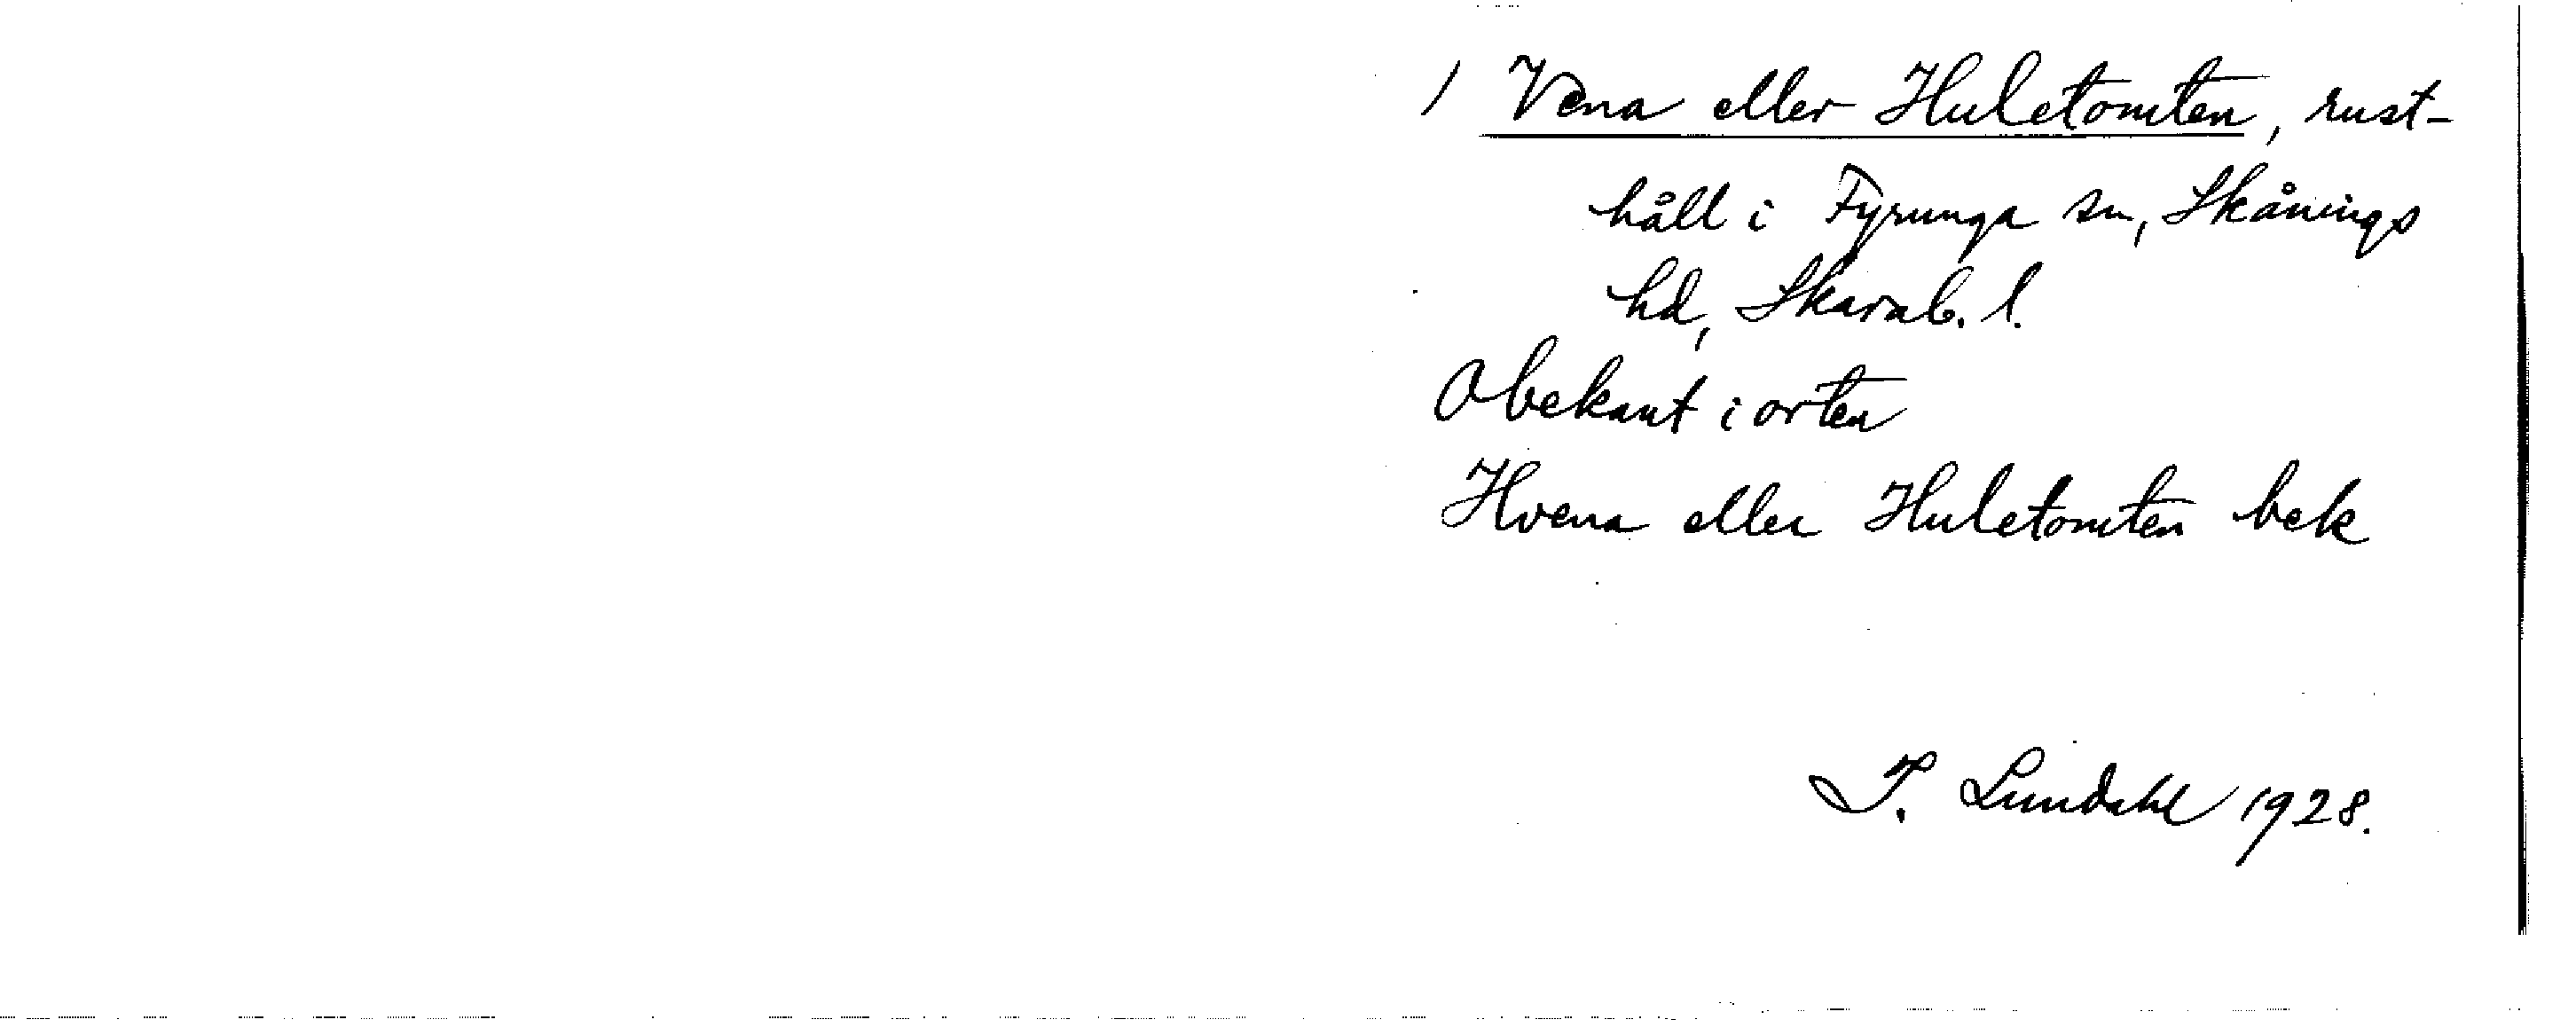 / Vena eller Huletomten, rust-
håll i Fyrunga sn, Skånings
hd, Skarab. l.
Obekant i orten
Hvena eller Huletomten bek
I. Lundahl 1928.